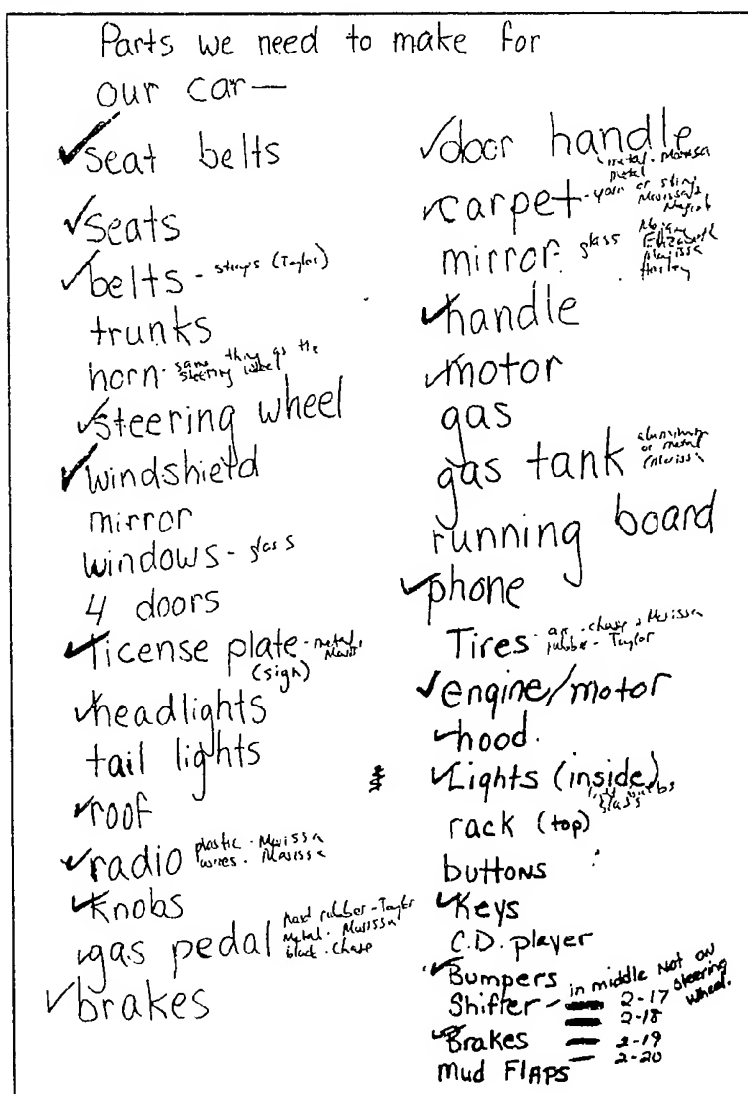 Parts we need to make for
our car—
✓seat belts
✓seats
✓belts - straps (Taylor)
trunks
horn - same thing as the
steering wheel
✓steering wheel
✓windshield
mirror
windows - glass
4 doors
✓license plate - metal
(sign)
✓headlights
tail lights
✓roof
✓radio plastic - Marissa
wires - Marissa
✓knobs
✓gas pedal hard rubber - Taylor
Metal - Marissa
black - chase
✓brakes
✓door handle
metal - Marissa
metal
✓carpet - yarn or string
mirror - glass
Elizabeth
Marissa
✓handle
✓motor
gas
gas tank aluminum
or metal
running board
✓phone
Tires - air - chase + Marissa
rubber - Taylor
✓engine/motor
✓hood.
✓Lights (inside)
light bulbs
glass
rack (top)
buttons
✓Keys
C.D. player
✓Bumpers
Shifter - in middle Not on
steering
wheel.
✓Brakes
Mud FlAPS
2-17
2-18
2-19
2-20